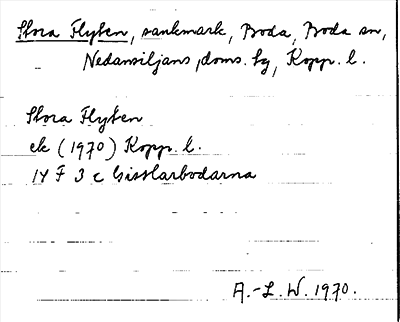 Stora Flyten, sankmark, Boda, Boda sn,
Nedansiljans doms. hg, Kopp. l.
Stora Flyten
ek (1970) Kopp. l.
14 F 3 c Gisslarbodarna
A.-L. W. 1970.